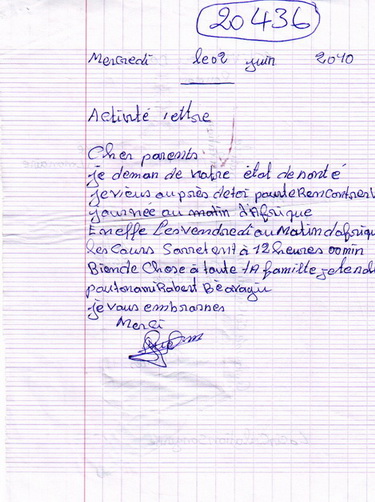 20436
Mercredi le 02 juin 2010
Activité : ettre
Cher parents.
je deman de votre état de santé
je viens auprès de toi pour te Rencontrer
journée au matin d'Afrique
En neffe Les vendredi au Matin d'afriqu
les Cours Sarretent à 12 heures 00 min
Bien de Chose à toute tA famille je te
par ton ami Robert
je vous embrasses
Merci